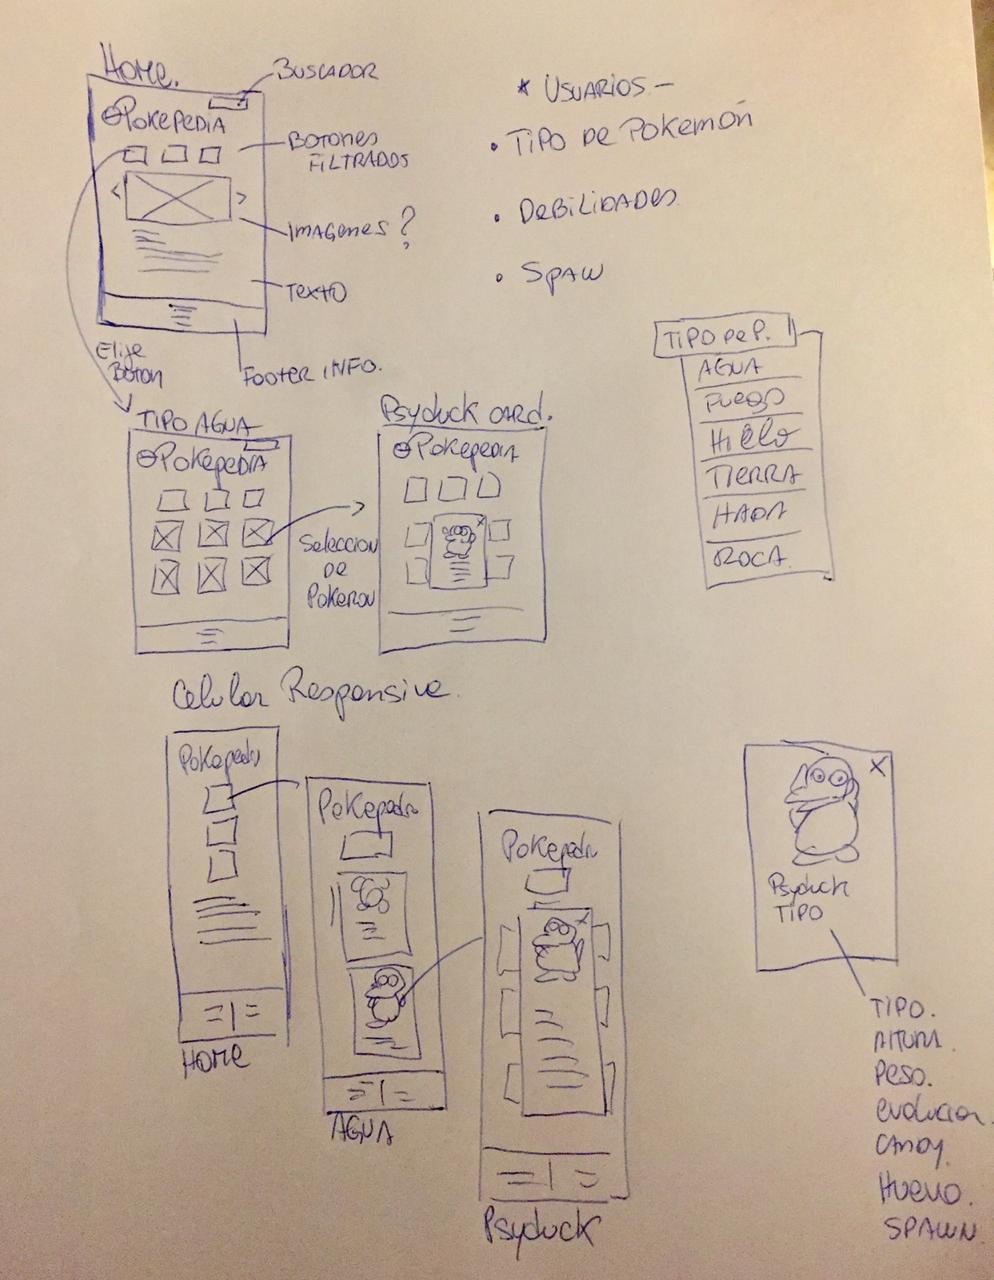 Home.
BUSCADOR
POKEPEDIA
BOTONES
FILTRADOS
IMAGENES?
TEXTO
FOOTER INFO.
Elije
Boton
* USUARIOS —
• TIPO DE POKEMÓN
• DEBILIDADES
• SPAW
TIPO DE P.
AGUA
FUEGO
HIELO
TIERRA
HADA
ROCA.
TIPO AGUA
POKEPEDIA
Seleccion
DE
POKEMON
Psyduck CARD.
POKEPEDIA
Celular Responsive.
Pokepedia
HOME
Pokepedia
AGUA
Pokepedia
Psyduck
X
Psyduck
TIPO
TIPO.
ALTURA.
PESO.
evolucion.
CANDY.
HUEVO.
SPAWN.